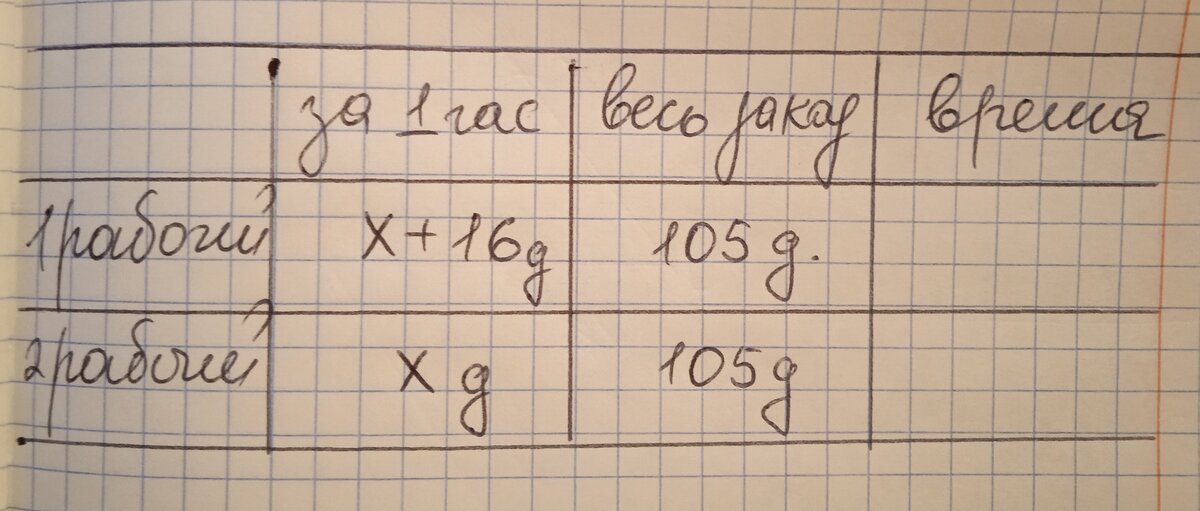 за 1 час весь заказ время
1 рабочий х + 16 д 105 д.
2 рабочий х д 105 д